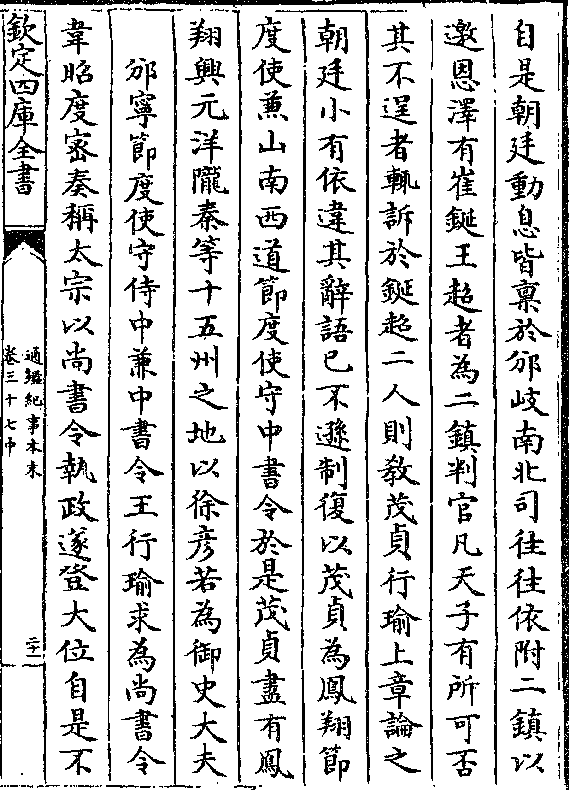 自是朝廷動息皆稟於邠岐南北司往往依附二鎮以
邀恩澤有崔鋋王超者為二鎮判官凡天子有所可否
其不逞者輒訴於鋋超二人則敎茂貞行瑜上章論之
朝廷小有依違其辭語已不遜制復以茂貞為鳳翔節
度使兼山南西道節度使守中書令於是茂貞盡有鳳
翔興元洋隴秦等十五州之地以徐彦若為御史大夫
邠寧節度使守侍中兼中書令王行瑜求為尚書令
韋昭度密奏稱太宗以尚書令執政遂登大位自是不
欽定四庫全書
通鑑紀事本末
卷三十七中
二十